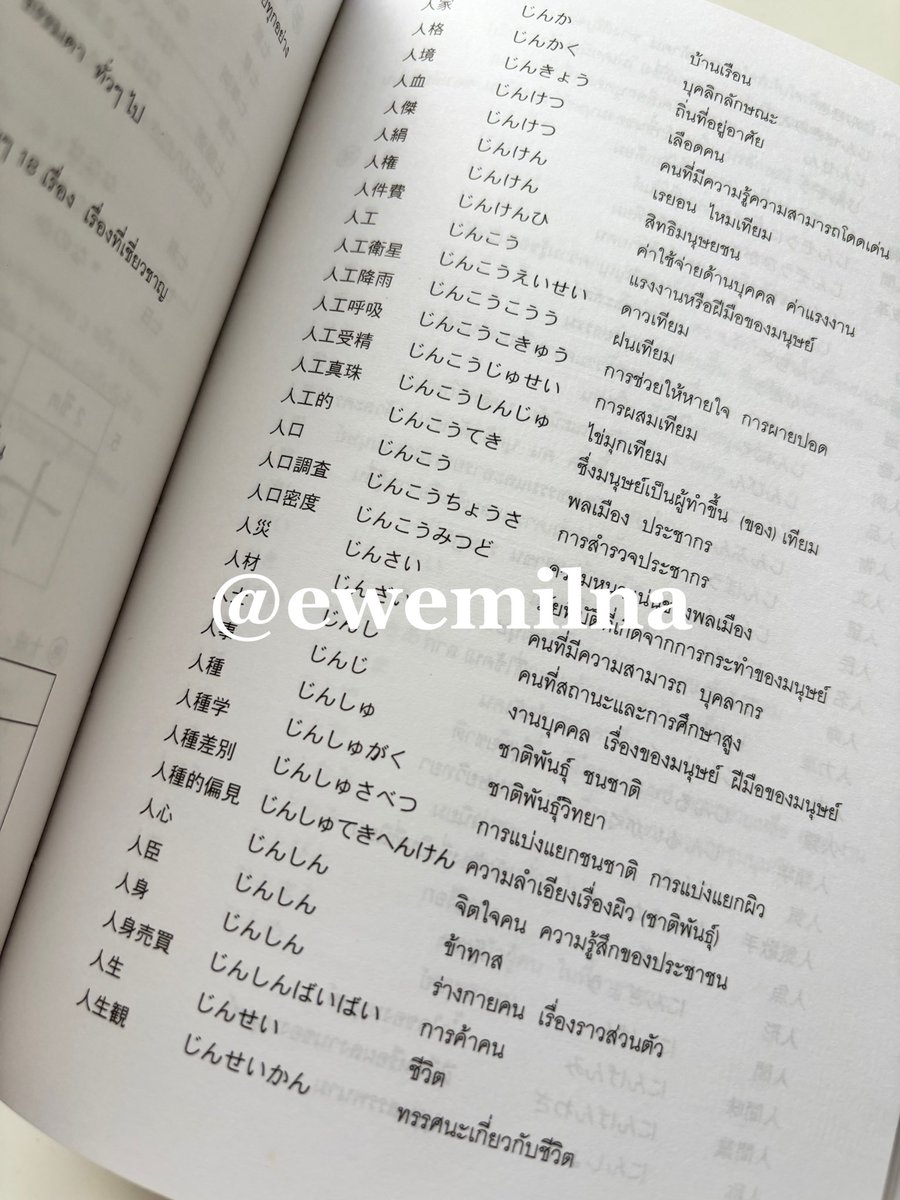 ทุกอย่าง
ธรรมดา ทั่วๆ ไป
ๆ 18 เรื่อง เรื่องที่เชี่ยวชาญ
人家 じんか บ้านเรือน
人格 じんかく บุคลิกลักษณะ
人境 じんきょう ถิ่นที่อยู่อาศัย
人血 じんけつ เลือดคน
人傑 じんけつ คนที่มีความรู้ความสามารถโดดเด่น
人絹 じんけん เรยอน ไหมเทียม
人権 じんけん สิทธิมนุษยชน
人件費 じんけんひ ค่าใช้จ่ายด้านบุคคล ค่าแรงงาน
人工 じんこう แรงงานหรือฝีมือของมนุษย์
人工衛星 じんこうえいせい ดาวเทียม
人工降雨 じんこうこうう ฝนเทียม
人工呼吸 じんこうこきゅう การช่วยให้หายใจ การผายปอด
人工受精 じんこうじゅせい การผสมเทียม
人工真珠 じんこうしんじゅ ไข่มุกเทียม
人工的 じんこうてき ซึ่งมนุษย์เป็นผู้ทำขึ้น (ของ) เทียม
人口 じんこう พลเมือง ประชากร
人口調査 じんこうちょうさ การสำรวจประชากร
人口密度 じんこうみつど ความหนาแน่นของพลเมือง
人災 じんさい ภัยพิบัติที่เกิดจากการกระทำของมนุษย์
人材 じんざい คนที่มีความสามารถ บุคลากร
人士 じんし คนที่สถานะและการศึกษาสูง
人事 じんじ งานบุคคล เรื่องของมนุษย์ ฝีมือของมนุษย์
人種 じんしゅ ชาติพันธุ์ ชนชาติ
人種学 じんしゅがく ชาติพันธุ์วิทยา
人種差別 じんしゅさべつ การแบ่งแยกชนชาติ การแบ่งแยกผิว
人種的偏見 じんしゅてきへんけん ความลำเอียงเรื่องผิว (ชาติพันธุ์)
人心 じんしん จิตใจคน ความรู้สึกของประชาชน
人臣 じんしん ข้าทาส
人身 じんしん ร่างกายคน เรื่องราวส่วนตัว
人身売買 じんしんばいばい การค้าคน
人生 じんせい ชีวิต
人生観 じんせいかん ทรรศนะเกี่ยวกับชีวิต
@ewemilna